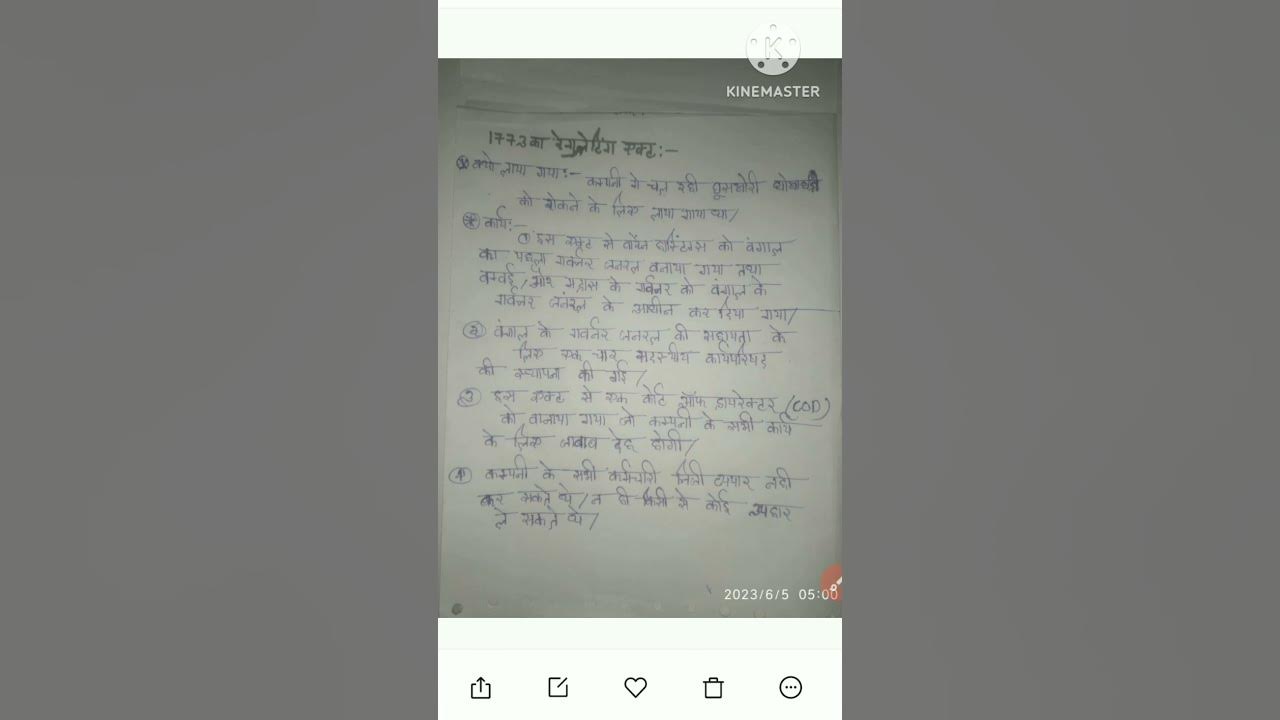 KINEMASTER
1773 का रेगुलेटिंग एक्ट:-
क्यो लाया गया:- कम्पनी मे चल रही घूसखोरी
को रोकने के लिए लाया गया था/
कार्य:-
① इस एक्ट से वॉरेन हेस्टिंग्स को बंगाल
का पहला गवर्नर जनरल बनाया गया तथा
बम्बई/और मद्रास के गर्वनर को बंगाल के
गर्वनर जनरल के आधीन कर दिया गया/
② बंगाल के गवर्नर जनरल की सहायता के
लिए एक चार सदस्यीय कार्यपरिषद
की स्थापना की गई/
③ इस एक्ट से एक कोर्ट ऑफ डायरेक्टर (COD)
को बानाया गया जो कम्पनी के सभी कार्य
के लिए जबाब देह होगी/
④ कम्पनी के सभी कर्मचारी निजी व्यपार नही
कर सकते थे/न ही किसी से कोई उपहार
ले सकते थे/
2023/6/5 05:00